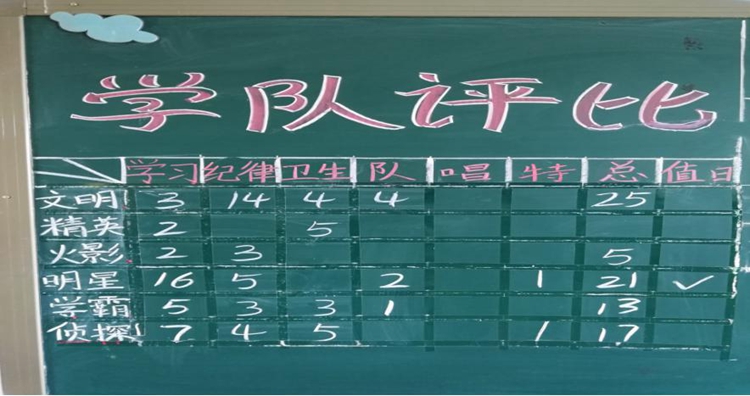 学队评比
学习 纪律 卫生 队 唱 特 总 值日
文明 3 14 4 4 25
精英 2 5
火影 2 3 5
明星 16 5 2 1 21 ✓
学霸 5 3 3 1 13
侦探 7 4 5 1 17